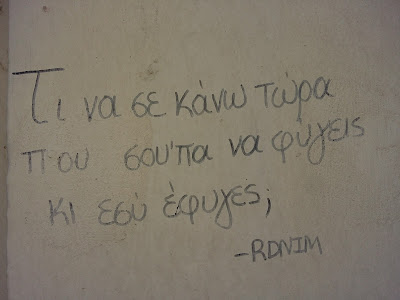 Τι να σε κάνω τώρα
που σου'πα να φύγεις
κι εσύ έφυγες;
-RDNIM